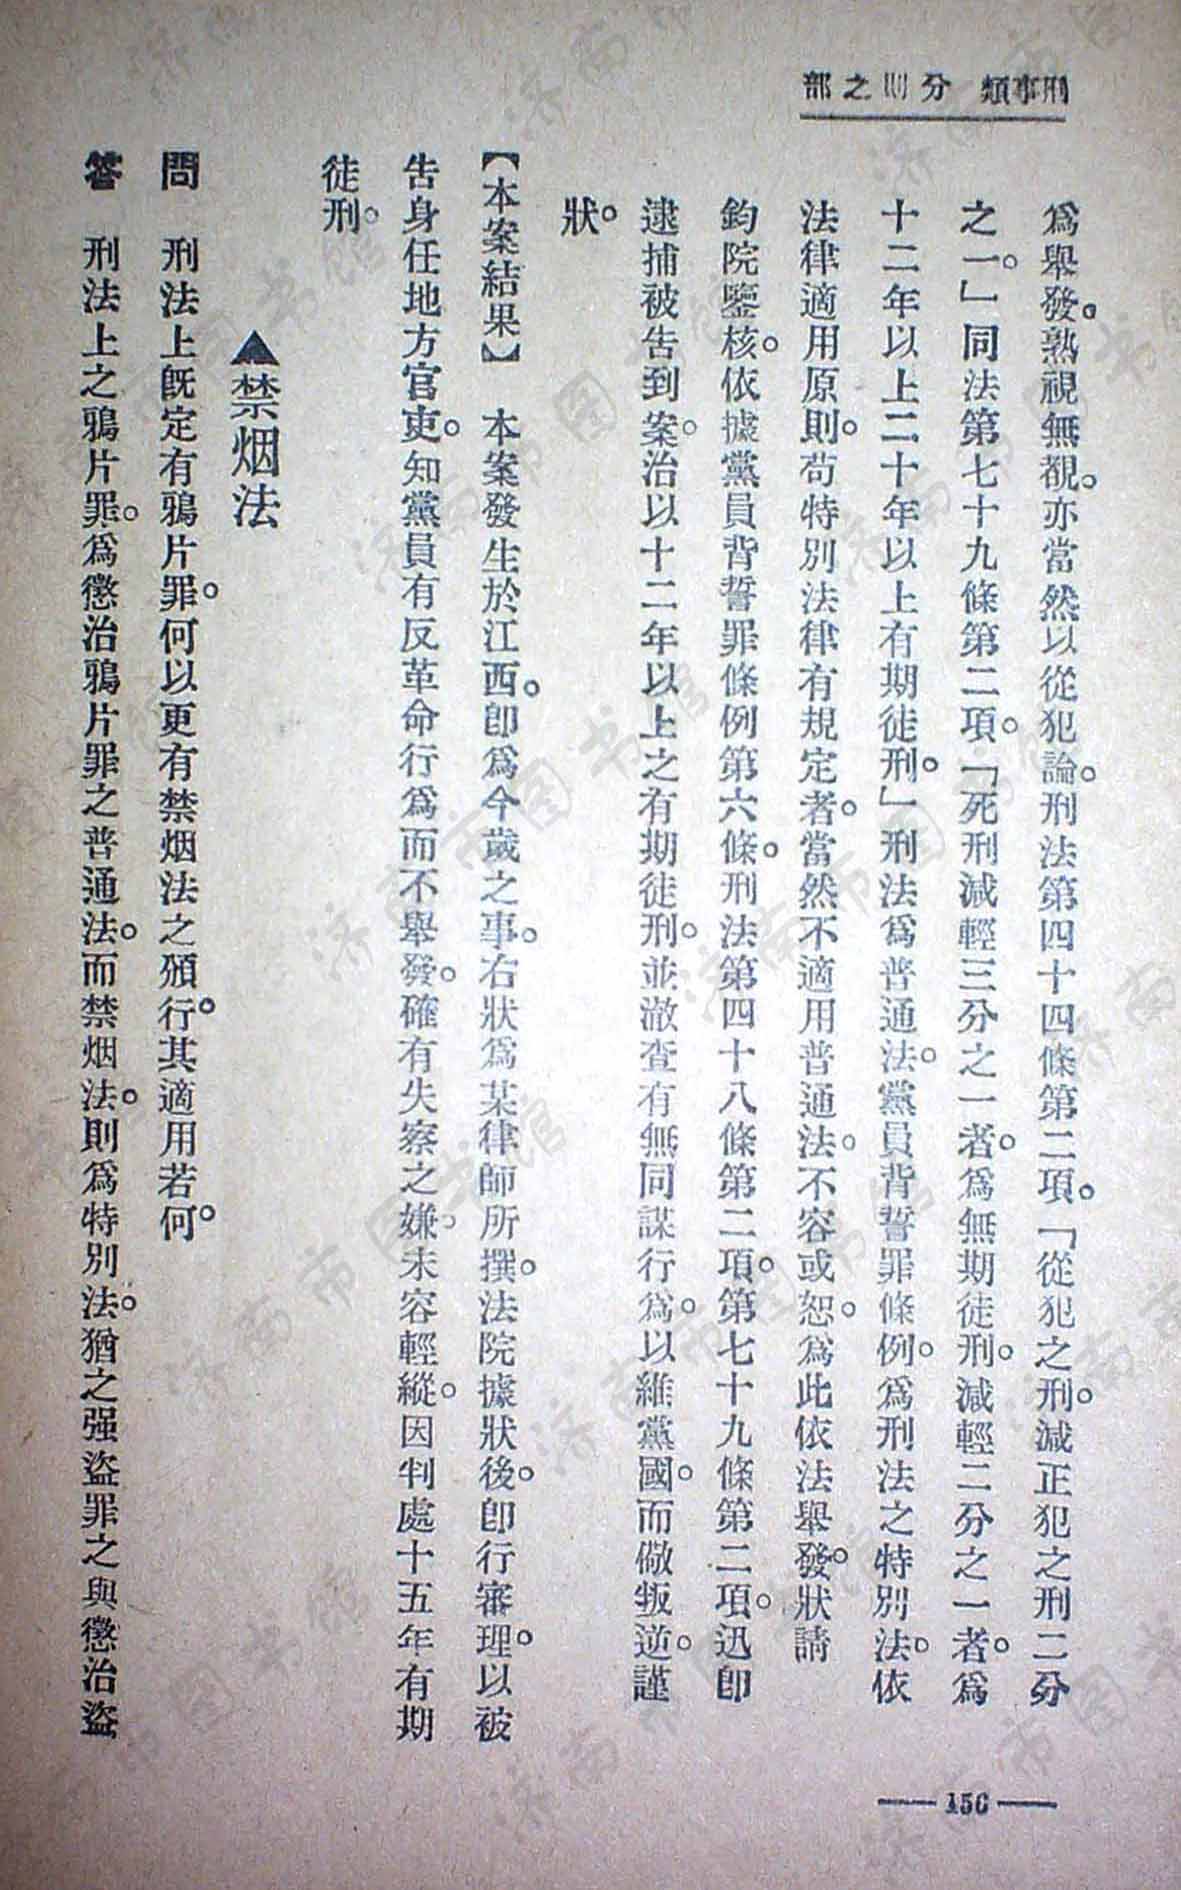 刑事類　分則之部
爲舉發。熟視無覩。亦當然以從犯論。刑法第四十四條第二項。「從犯之刑。減正犯之刑二分
之一。」同法第七十九條第二項。「死刑減輕三分之一者。爲無期徒刑。減輕二分之一者。爲
十二年以上二十年以上有期徒刑。」刑法爲普通法。黨員背誓罪條例。爲刑法之特別法。依
法律適用原則。苟特別法律有規定者。當然不適用普通法。不容或恕。爲此依法舉發。狀請
鈞院鑒核。依據黨員背誓罪條例第六條。刑法第四十八條第二項。第七十九條第二項。迅卽
逮捕被告到案。治以十二年以上之有期徒刑。並澈查有無同謀行爲。以維黨國。而儆叛逆。謹
狀。
【本案結果】　本案發生於江西。卽爲今歲之事。右狀爲某律師所撰。法院據狀後。卽行審理。以被
告身任地方官吏。知黨員有反革命行爲而不舉發。確有失察之嫌。未容輕縱。因判處十五年有期
徒刑。
▲禁烟法
問　刑法上旣定有鴉片罪。何以更有禁烟法之頒行。其適用若何。
答　刑法上之鴉片罪。爲懲治鴉片罪之普通法。而禁烟法。則爲特別法。猶之强盜罪之與懲治盜
—— 156 ——
济南市图书馆